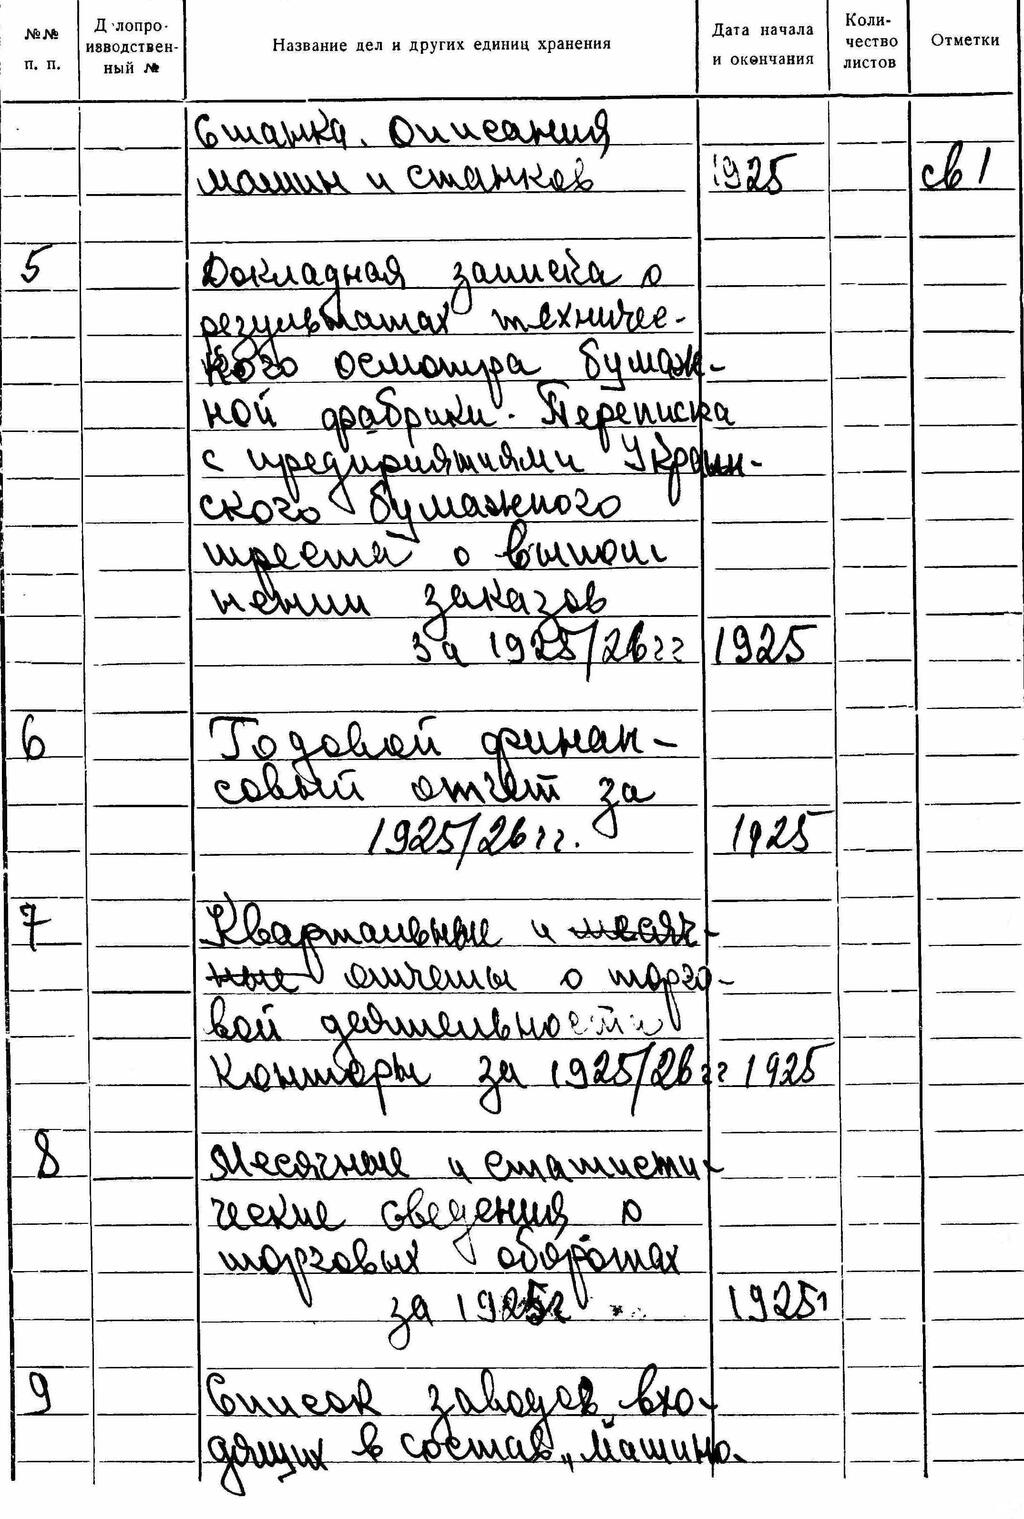 №№ п. п.
Делопро-изводствен-ный №
Название дел и других единиц хранения
Дата начала и окончания
Коли-чество листов
Отметки
Станка. Описания
машин и станков 1925 св 1
5 Докладная записка о
результатах техничес-
кого осмотра бумаж-
ной фабрики. Переписка
с предприятиями Украин-
ского бумажного
треста о выпол
нении заказов
за 1925/26гг 1925
6 Годовой финан-
совый отчет за
1925/26гг. 1925
7 Квартальные и месяч-
ные отчеты о торго-
вой деятельности
Конторы за 1925/26гг 1925
8 Месячные и статисти-
ческие сведения о
торговых оборотах
за 1925г 1925г
9 Список заводов, вхо-
дящих в состав „Машино-